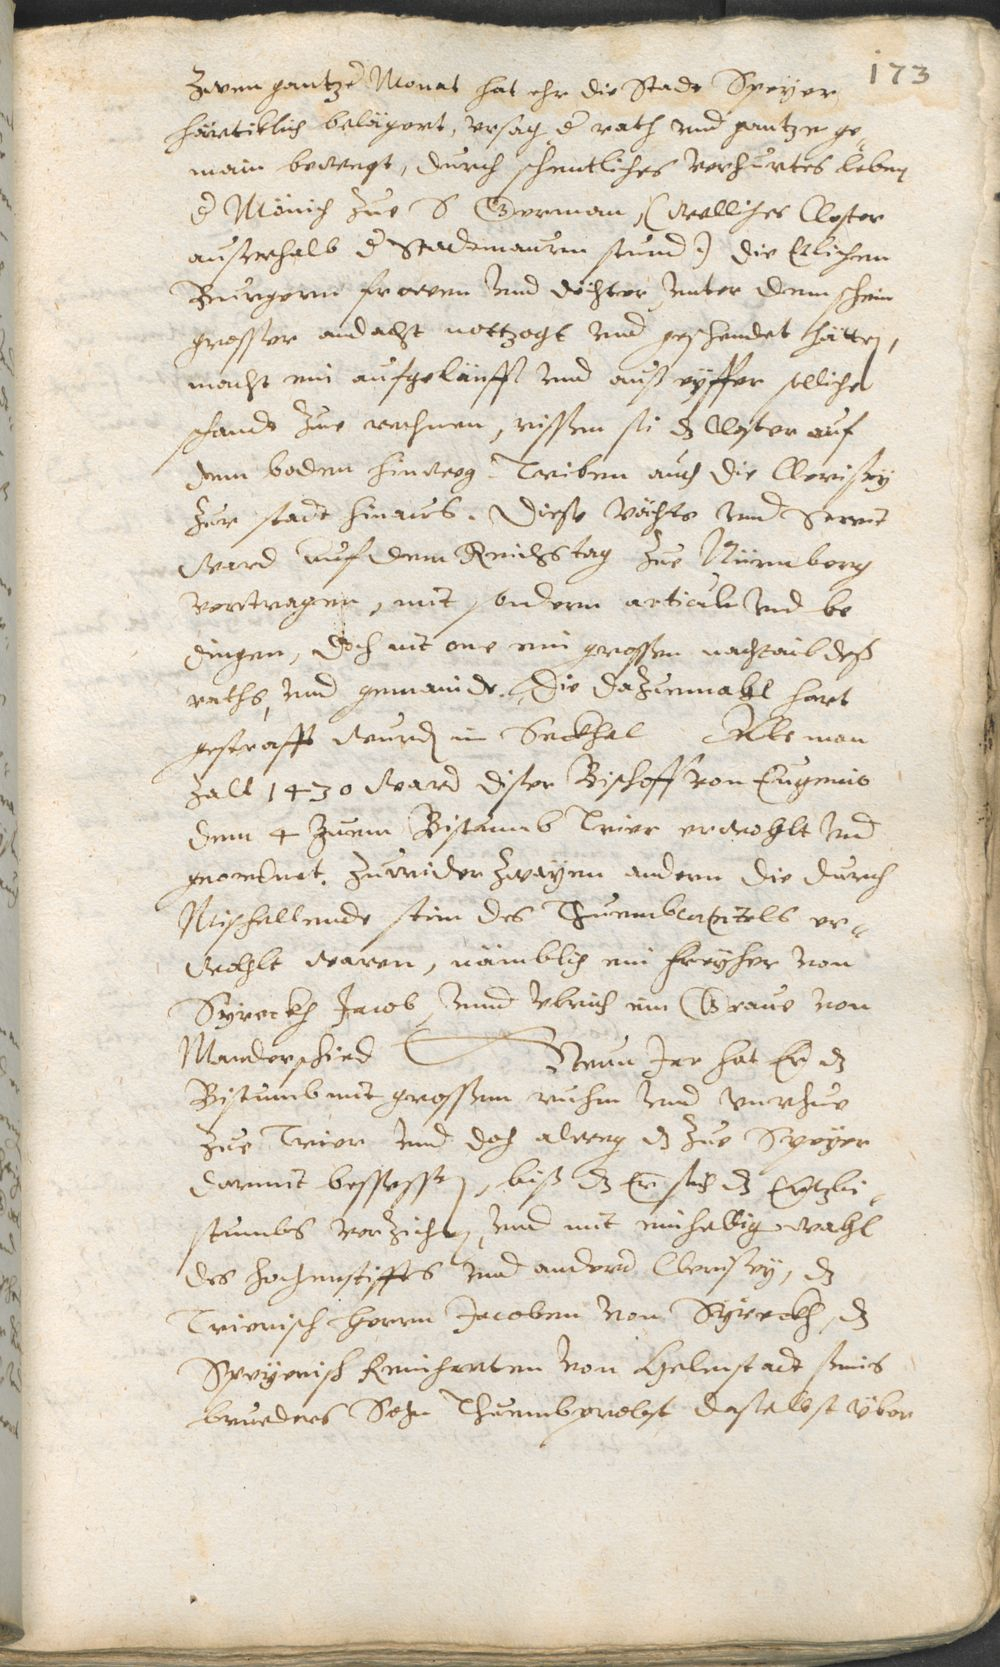 173
Zwen gantze Monat hat ehr die Stade Speyer
härtiklich belägert, ursach d rath und gantze ge„
main bewegt, durch schentliches verhurtes leben
d Mönich zue S German, (welliches Closter
ausserhalb d Stademauren stund) die Elichen
Burgern frawen und döchter unter dem schein
grosser andacht nottzogt und geschendet hätten,
macht ein aufgeläuff und auß eyffer solliche
schande zue rechnen, rissen si dz Closter auf
dem boden hinweg. Triben auch die Clerisey
zur stadt hinaus. Diese rächts und
ward auf dem Reichstag zue Nürmberg
vertragen, mit sondern articulen und be
dingen, doch nit one ein grossen nachtail deß
raths, und gemainde. Die dazuemahl hart
gestrafft wurden im Seckhel Alls man
zall 1430 ward diser Bischoff von Eugenio
dem 4 zuem Bistumb Trier erwohlt und
geordnet. Zuwider zwayen andern die durch
Mishellende stim des Thuembcapitels er„
wohlt waren, nämblich ein freyher von
Syreckh Jacob, unnd Ulrich ein Grave von
Manderschied Neun Jar hat Er dz
Bistumb mit grossem ruhm und unrhue
zue Trier und doch alweg dz zue Speyer
darmit bessessen, biß dz Er sich dz Ertzbi„
stumbs verzichen, und mit einhellig wahl
des hochenstiffts und anderer Clerisey, dz
Trierisch Herrn Jacoben von Syreckh, dz
Speyerisch Reinharten von Helmstadt seines
bruders Sohn Thuembprobst daselbst über